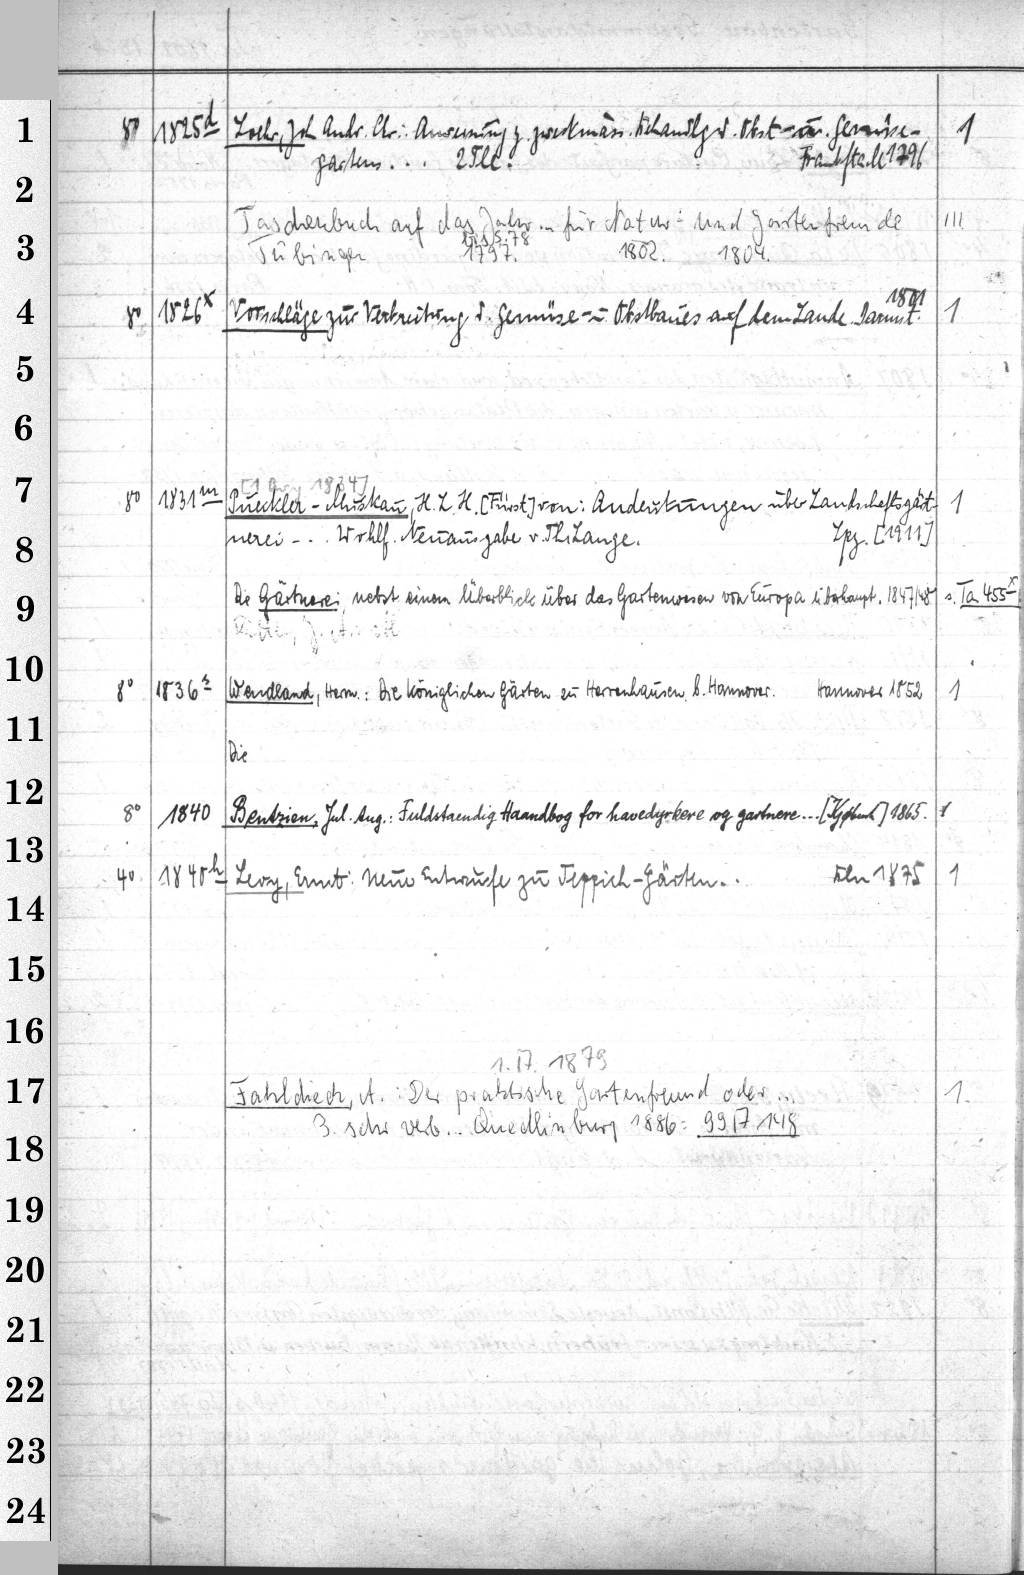 1
8° 1825d Loehr, Joh. Andr. Chr.: Anweisung z. zweckmäss. Behandlg d. Obst- u. Gemüse- 1
gartens . . . 2 Tle. Frankf. a. M. 1796
2
Taschenbuch auf das Jahr ... für Natur- und Gartenfreunde III
3
Tübingen 1797. 1802. 1804.
1801
4
8° 1826x Vorschläge zur Verbreitung d. Gemüse- u. Obstbaues auf dem Lande. Darmst. 1
5
6
7
[1834]
8° 1831m Pueckler-Muskau, H. L. H. [Fürst] von: Andeutungen über Landschaftsgärt- 1
nerei - . . Wohlf. Neuausgabe v. Th. Lange. Lpz. [1911]
8
9
Die Gärtnerei nebst einem Überblick über das Gartenwesen von Europa überhaupt. 1847/48 s. Ta 455x
10
8° 1836s Wendland, Herm.: Die Königlichen Gärten zu Herrenhausen b. Hannover. Hannover 1852 1
11
Die
12
8° 1840 Bentzien, Jul. Aug.: Fuldstaendig Haandbog for havedyrkere og gartnere... [Kjøbenh] 1865. 1
13
4° 1840h Levy, Ernst: Neue Entwürfe zu Teppich-Gärten. . . 1875 1
14
15
16
1879
17
Fahldieck, A.: Der praktische Gartenfreund oder ... 1.
3. sehr verb... Quedlinburg 1886 = 99 148
18
19
20
21
22
23
24